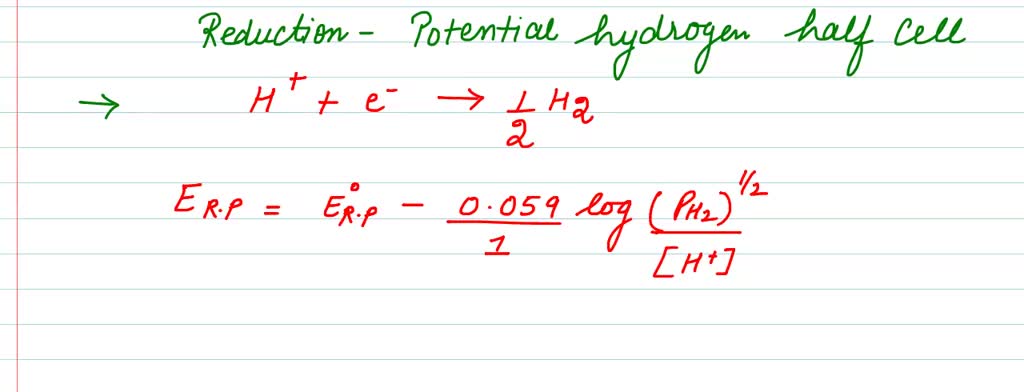 Reduction - Potential hydrogen half cell
→ H⁺ + e⁻ → 1/2 H2
E R.P = E°R.P - 0.059/1 log (PH2)^1/2 / [H⁺]